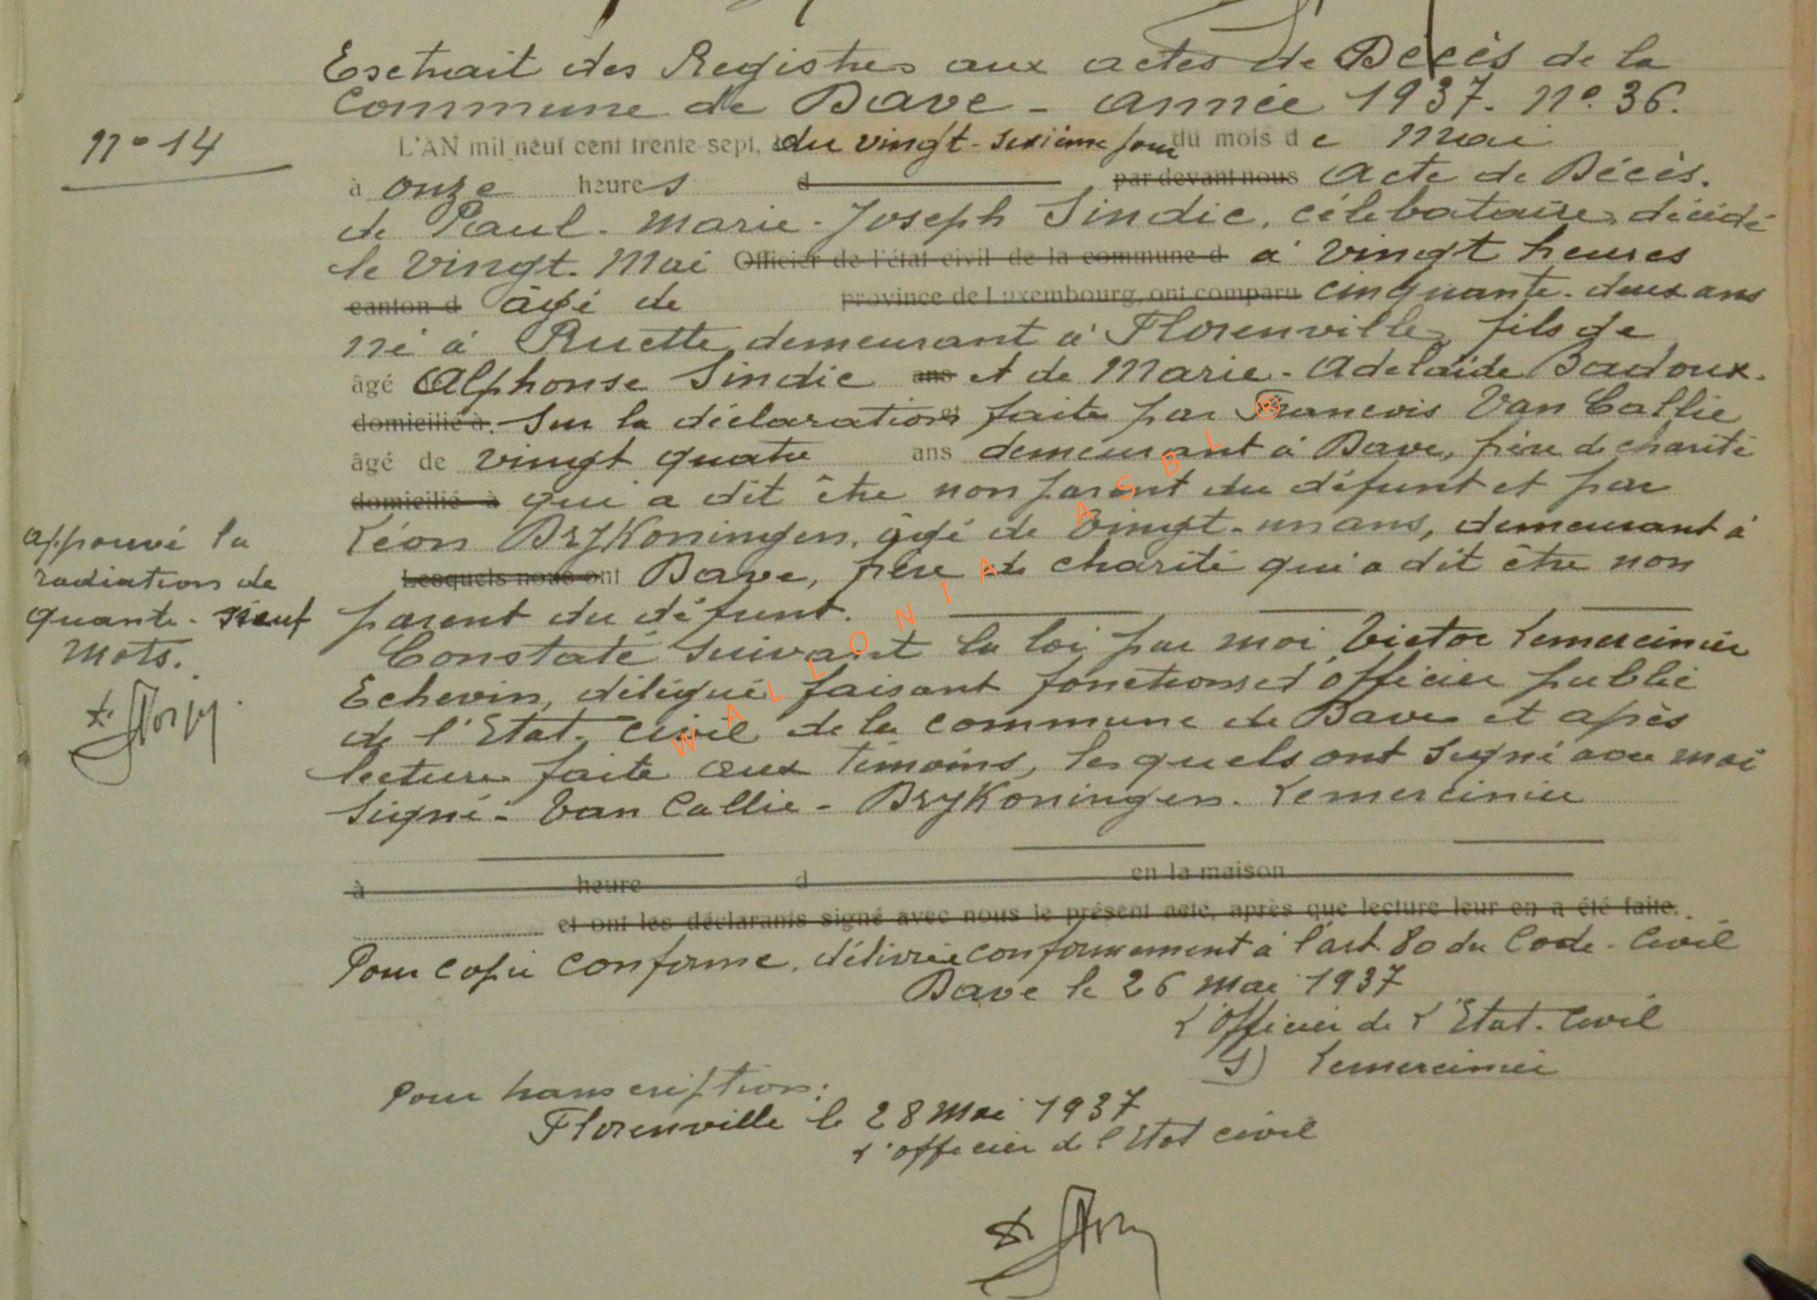 Extrait des Registres aux actes de Décès de la
commune de Dave - année 1937. n°. 36.
n° 14
L'AN mil neuf cent trente-sept, du vingt-sixième jour du mois de mai
à onze heures d par devant nous acte de Décès.
de Paul-Marie-Joseph Sindic, célibataire, décédé
le vingt-mai Officier de l'état civil de la commune d à vingt heures
canton d âgé de province de Luxembourg, ont comparu cinquante-deux ans
né à Ruette, demeurant à Florenville, fils de
âgé Alphonse Sindic ans et de Marie-Adelaïde Badoux.
domicilié à. Sur la déclaration faite par Francois Van Callie
âgé de vingt quatre ans demeurant à Dave, frère de charité
domicilié à qui a dit être non parent du défunt et par
Léon Brykoningen, âgé de vingt-un ans, demeurant à
Lesquels nous ont Dave, frère de charité qui a dit être non
parent du défunt.
approuvé la
radiation de
quante-neuf
mots.
Constaté suivant la loi par moi Victor Lemercinier
Echevin, délégué faisant fonctions d'officier public
de l'Etat-civil de la commune de Dave et après
lecture faite aux témoins, lesquels ont signé avec moi
Signé - Van Callie - Brykoningen. Lemercinier
à heure d en la maison
et ont les déclarants signé avec nous le présent acte, après que lecture leur en a été faite.
Pour copie conforme, délivrée conformément à l'art. 80 du Code-Civil
Dave le 26 mai 1937
L'Officier de L'Etat-Civil
S) Lemercinier
Pour transcription:
Florenville le 28 mai 1937
L'officier de l'Etat civil
WALLONIA ASBL ®